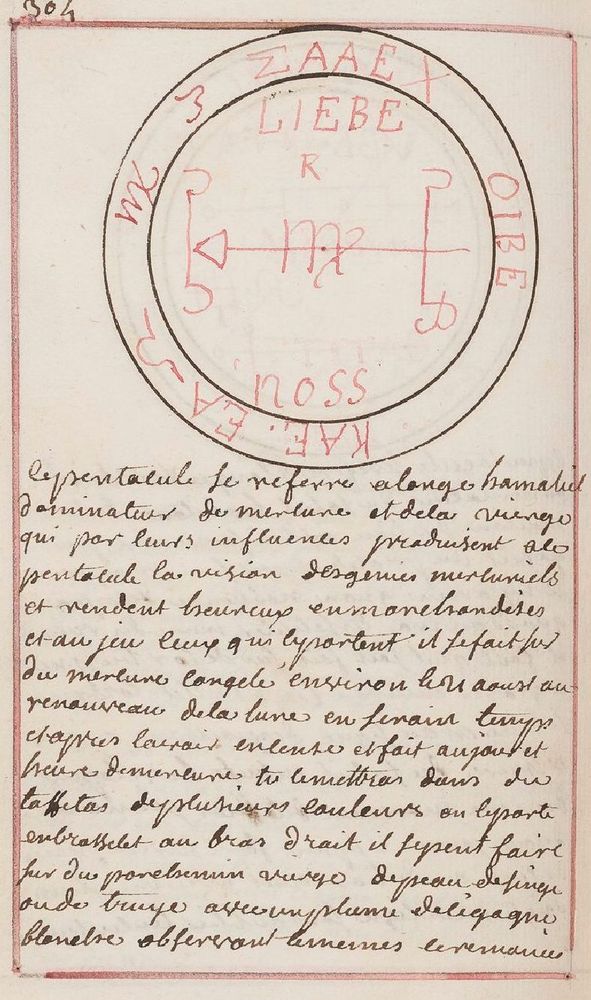 304
ΣAAE X
OIBE
KAE. EA
LIEBE
R
NOSS
le pentacule se referre a lange hamaliel
dominateur de mercure et dela vierge
qui par leurs influences produisent ale
pentacule la vision des genies mercuriels
et rendent heureux en marchandises
et au jeu ceux qui le portent il se fait sur
du mercure congelé environ le 21 aoust au
renouveau dela lune en serain temps
et apres lavoir encensé et fait au jour et
heure de mercure tu le mettras dans du
taffetas de plusieurs couleurs on le porte
en brasselet au bras droit il se peut faire
sur du parchemin vierge de peau de singe
ou de truye avec un plume de cigogne
blanche observant le memes ceremonies